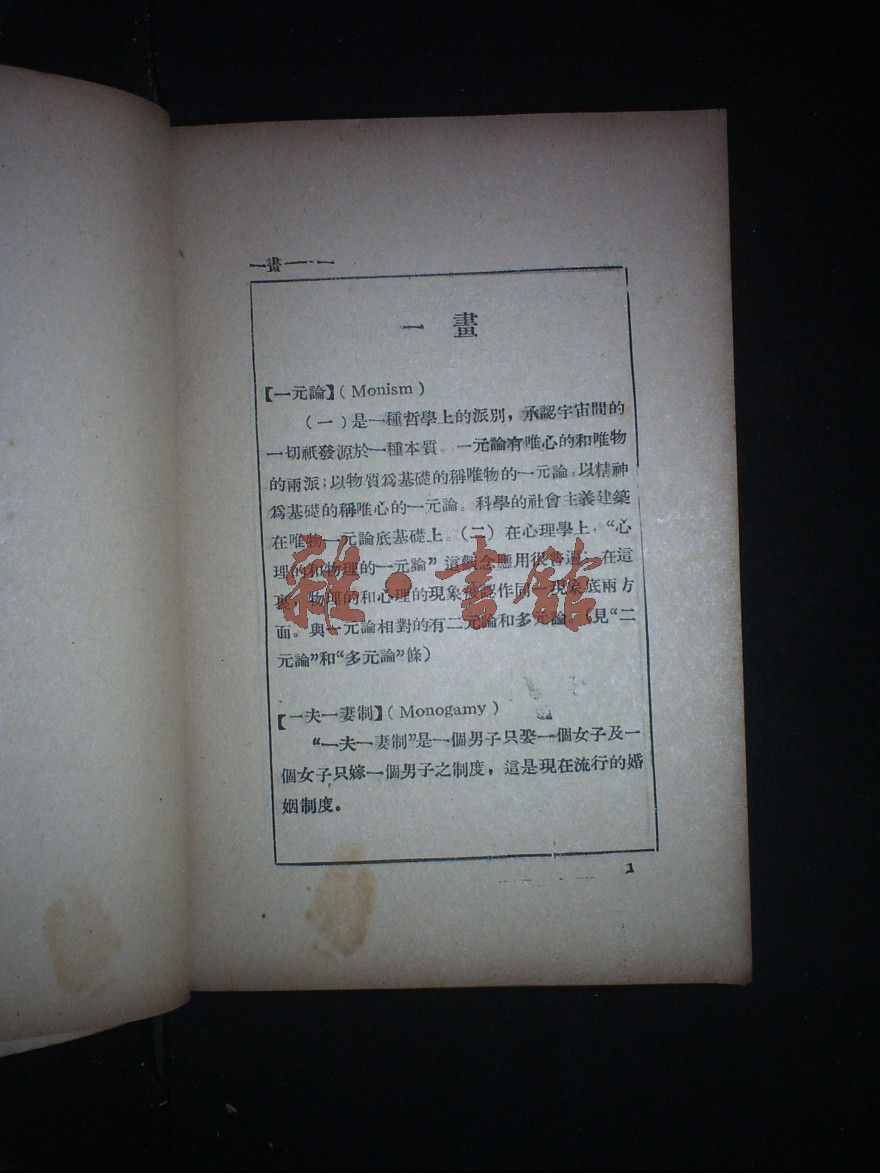 一畫——·一
一畫
【一元論】( Monism )
(一)是一種哲學上的派別，承認宇宙間的
一切祇發源於一種本質。一元論有唯心的和唯物
的兩派；以物質爲基礎的稱唯物的一元論，以精神
爲基礎的稱唯心的一元論。科學的社會主義建築
在唯物一元論底基礎上。(二)在心理學上，“心
理的和物理的一元論”這觀念應用很普遍；在這
裏，物理的和心理的現象被認作同一現象底兩方
面。與一元論相對的有二元論和多元論。(見“二
元論”和“多元論”條)
【一夫一妻制】( Monogamy )
“一夫一妻制”是一個男子只娶一個女子及一
個女子只嫁一個男子之制度，這是現在流行的婚
姻制度。
1
雜·書館